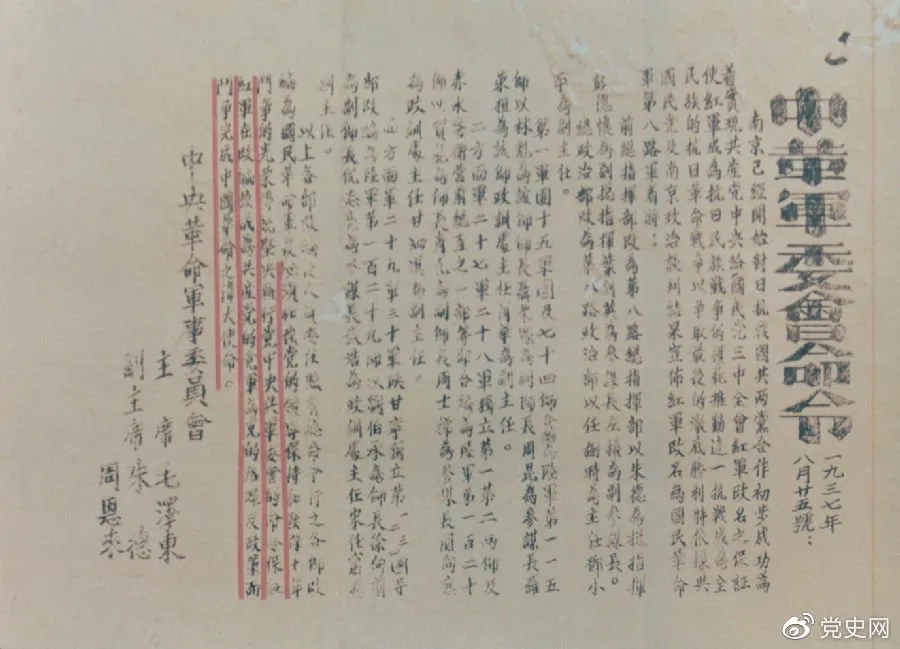 中革軍委會命令
一九三七年
八月廿五號：
南京已經開始對日抗戰國共兩黨合作初步成功為
著實現共產黨中央給國民黨三中全會紅軍改名之保証
使紅軍成為抗日民族戰爭的模範推動這一抗戰成為全
民族的抗日革命戰爭以爭取最後的澈底勝利特依據與
國民黨及南京政治談判結果宣佈紅軍改名為國民革命
軍第八路軍着將：
前總指揮部改為第八路總指揮部以朱德為總指揮
彭德懷為副總指揮葉劍英為參謀長左權為副參謀長。
總政治部改為第八路政治部以任弼時為主任鄧小
平為副主任。
第一軍團十五軍團及七十四師合編為陸軍第一一五
師以林彪為該師師長聶榮臻為副師長周昆為參謀長羅
榮桓為該師政訓處主任蕭華為副主任。
二方面軍二十七軍二十八軍獨立第一第二兩師及
赤水警衛營前總直之一部等部合編為陸軍第一百二十
師以賀龍為師長蕭克為副師長周士第為參謀長關向應
為政訓處主任甘泗淇為副主任。
四方面軍二十九軍三十軍陝甘寧獨立第一二三四團等
部改編為陸軍第一百二十九師以劉伯承為師長徐向前
為副師長倪志亮為參謀長張浩為政訓處主任宋任窮為
副主任。
以上各部改編後人員委任照前總命令行之各部改
編為國民革命軍後必須加強黨的領導保持和發揮十年
鬥爭的光榮傳統堅決執行黨中央與軍委會的命令保證
紅軍在改編後成為共產黨的黨軍為黨的路線及政策而
鬥爭完成中國革命之偉大使命。
中央革命軍事委員會
主席毛澤東
副主席朱德
周恩來
党史网